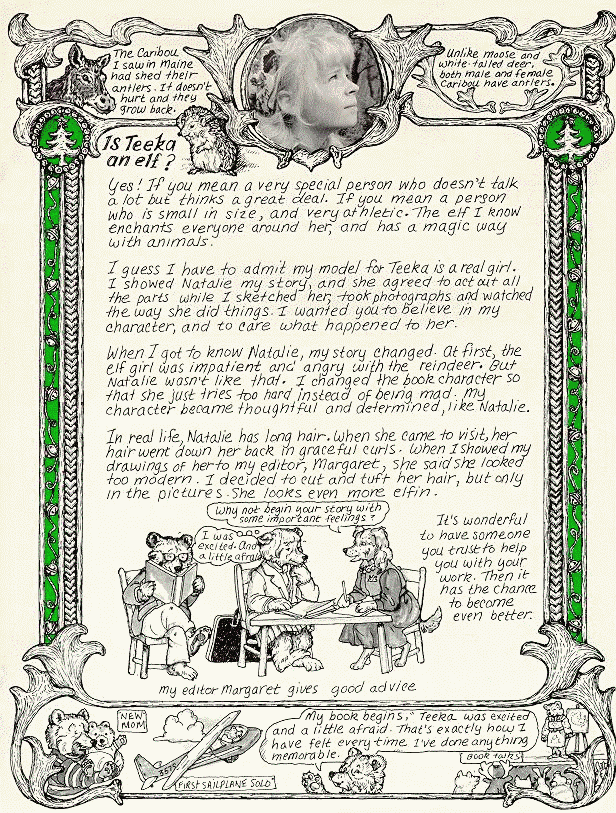 The Caribou
I saw in Maine
had shed their
antlers. It doesn't
hurt and they
grow back.
Unlike moose and
white-tailed deer,
both male and female
Caribou have antlers.
Is Teeka
an elf?
Yes! If you mean a very special person who doesn't talk
a lot but thinks a great deal. If you mean a person
who is small in size, and very athletic. The elf I know
enchants everyone around her, and has a magic way
with animals.
I guess I have to admit my model for Teeka is a real girl.
I showed Natalie my story, and she agreed to act out all
the parts while I sketched her, took photographs and watched
the way she did things. I wanted you to believe in my
character, and to care what happened to her.
When I got to know Natalie, my story changed. At first, the
elf girl was impatient and angry with the reindeer. But
Natalie wasn't like that. I changed the book character so
that she just tries too hard instead of being mad. My
character became thoughtful and determined, like Natalie.
In real life, Natalie has long hair. When she came to visit, her
hair went down her back in graceful curls. When I showed my
drawings of her to my editor, Margaret, she said she looked
too modern. I decided to cut and tuft her hair, but only
in the pictures. She looks even more elfin.
Why not begin your story with
some important feelings?
I was
excited. And
a little afraid
It's wonderful
to have someone
you trust to help
you with your
work. Then it
has the chance
to become
even better.
my editor Margaret gives good advice
NEW
MOM
FIRST SAILPLANE SOLO
My book begins, "Teeka was excited
and a little afraid. That's exactly how I
have felt every time I've done anything
memorable.
Book talks